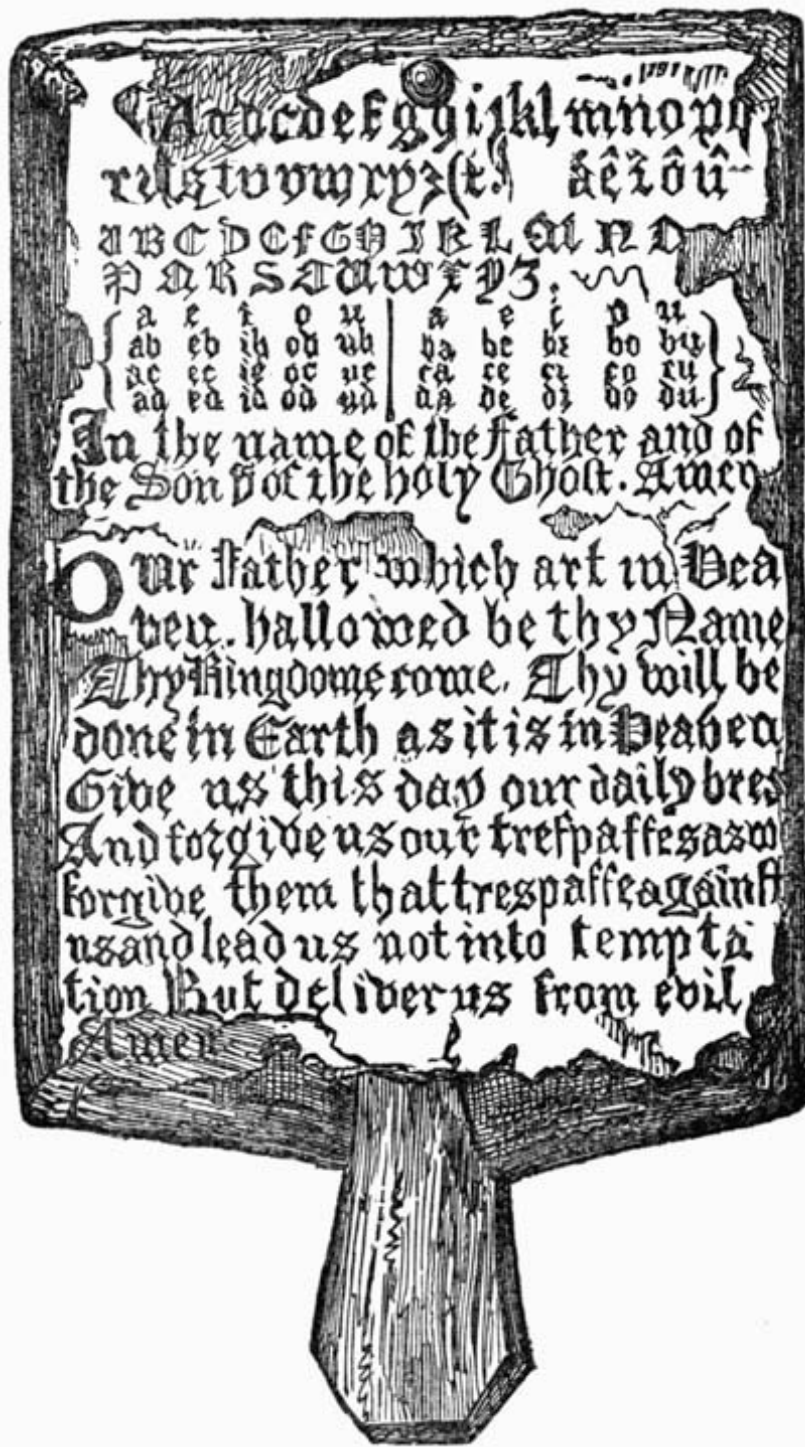 Aabcdefggijklmnopq
rilstuvwxyz&. âêîôû
ABCDEFGHIKLMNO
PQRSTUWXYZ.
a e i o u a e i o u
ab eb ib ob ub ba be bi bo bu
ac ec ic oc uc ca ce ci co cu
ad ed id od ud da de di do du
In the name of the Father and of
the Son & of the holy Ghost. Amen
Our Father which art in Hea
ven. hallowed be thy Name
Thy Kingdome come. Thy will be
done in Earth as it is in Heaven
Give us this day our daily bre
And forgive us our trespasses as w
forgive them that trespasse against
us and lead us not into tempta
tion But deliver us from evil
Amen